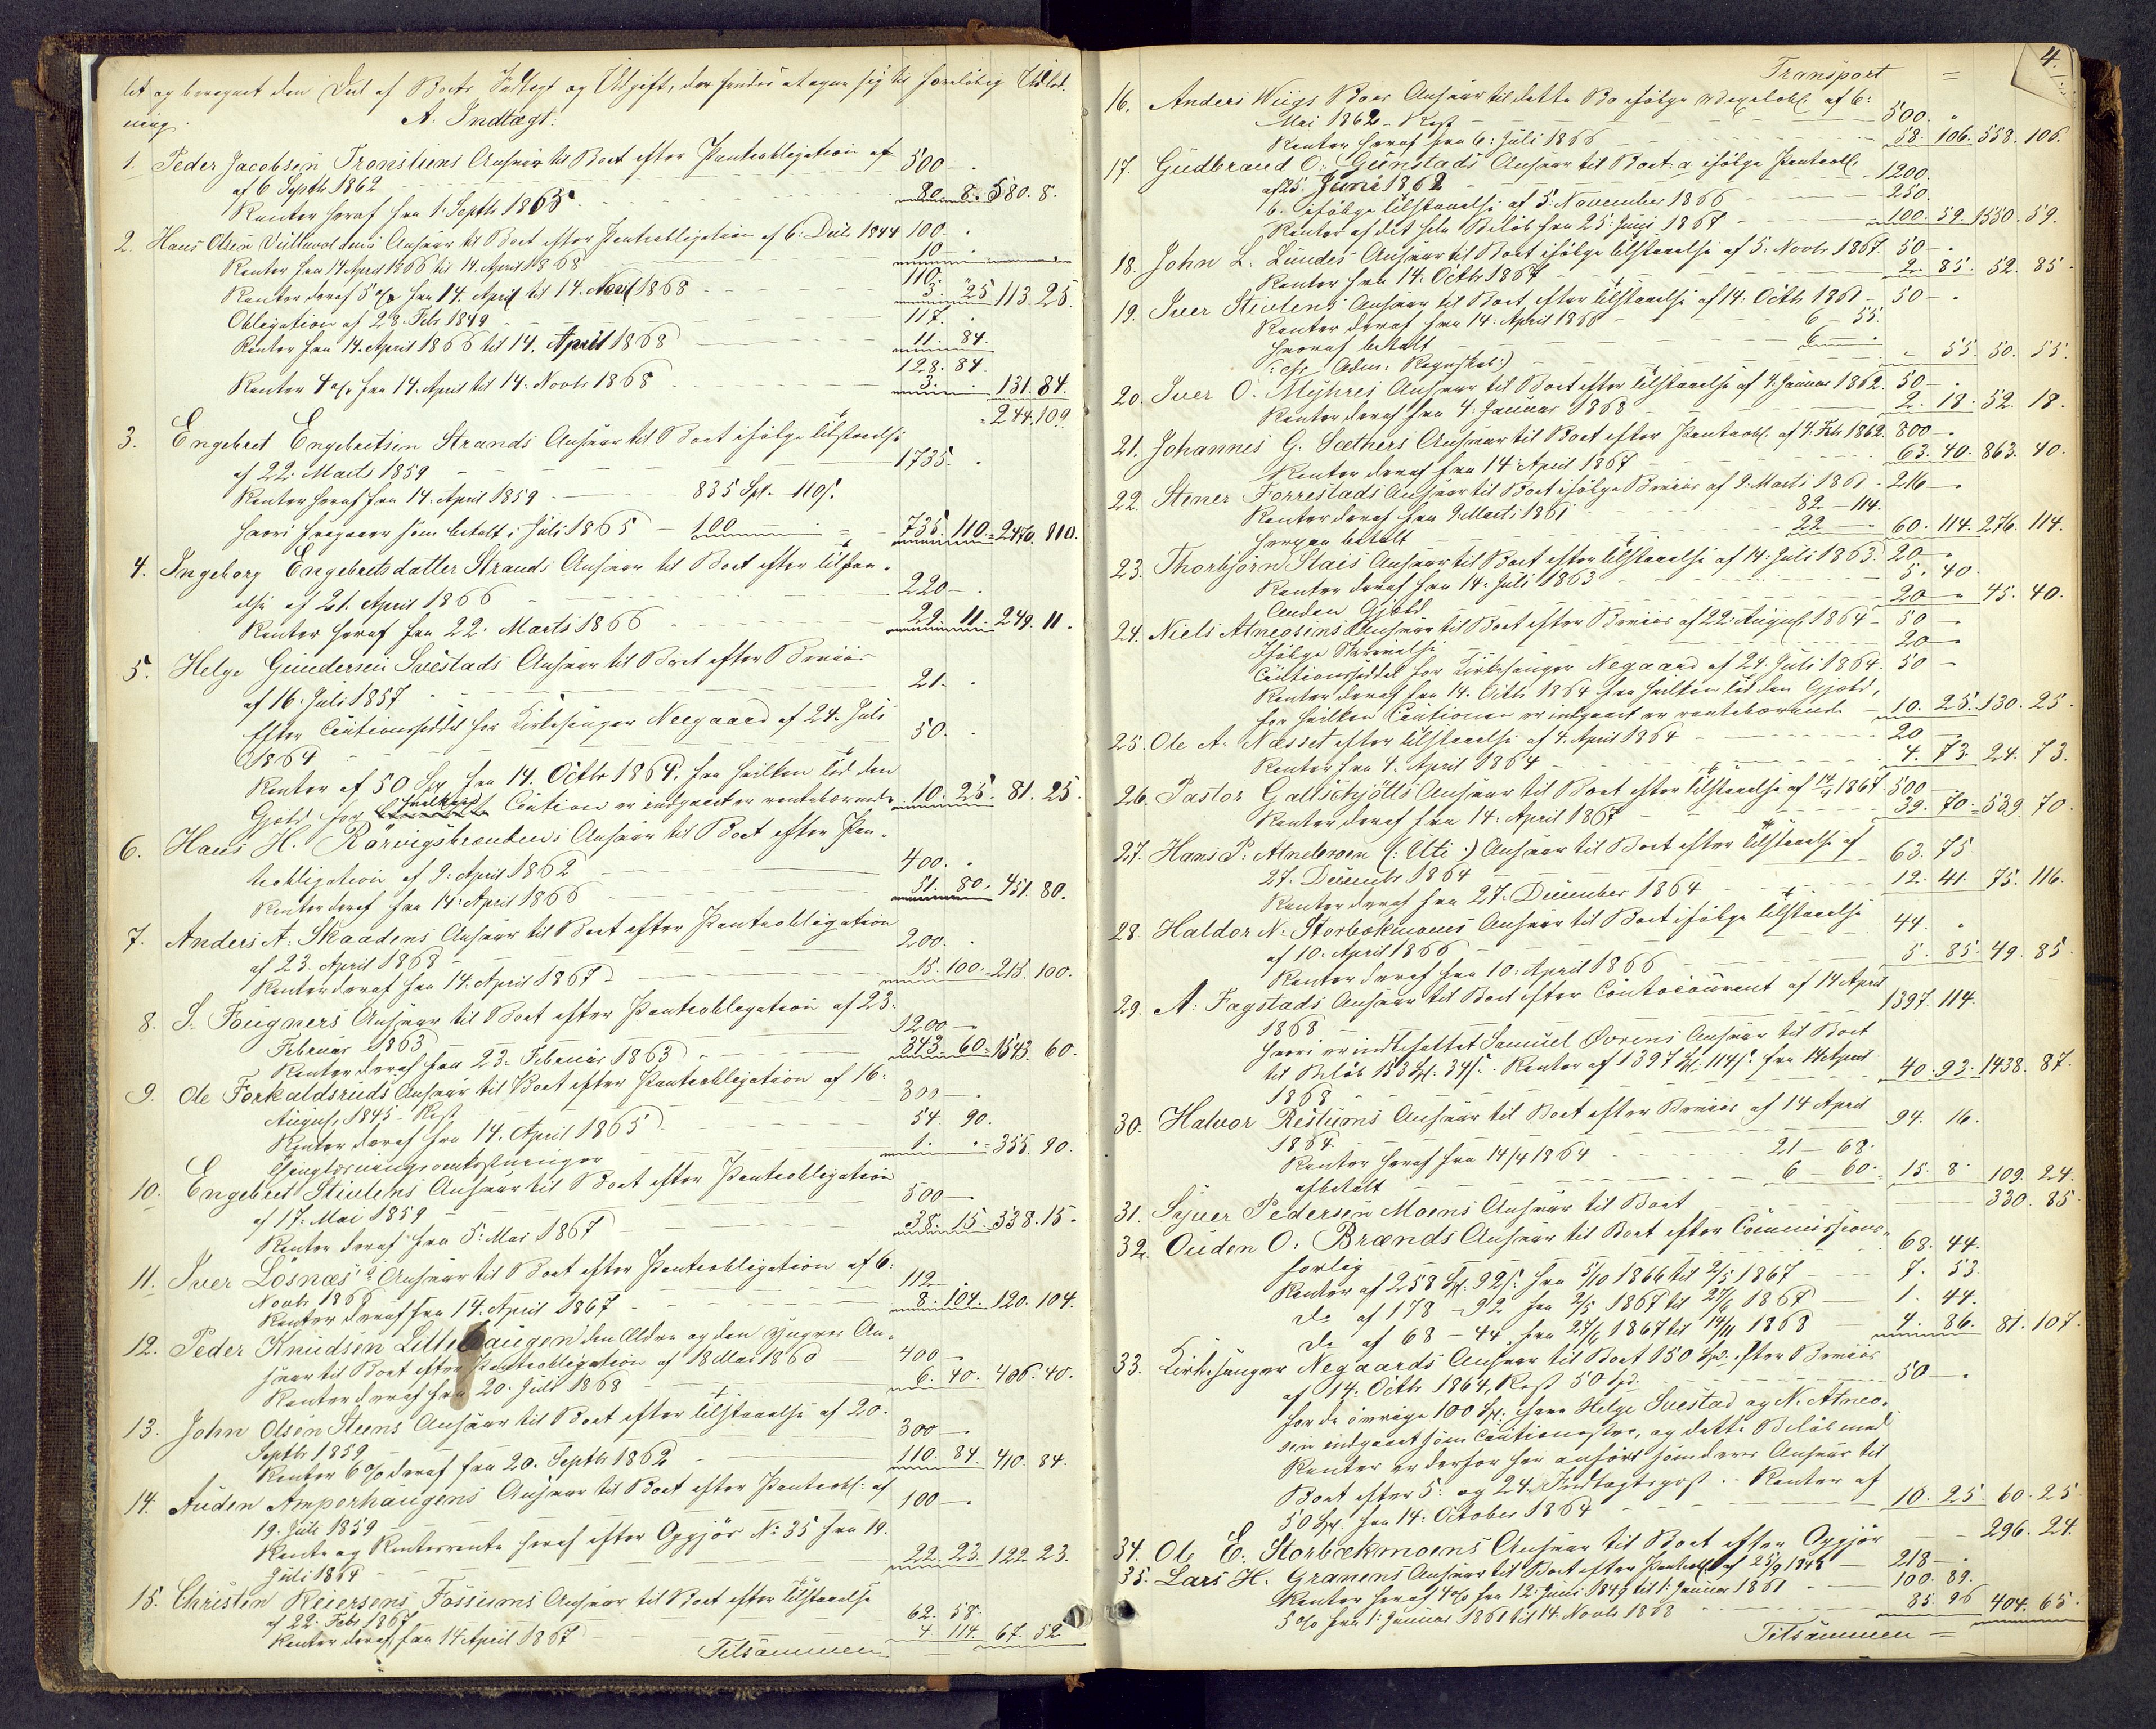 let og beregnet den Deel af Boets Indtægt og Udgift, der findes at egne sig til foreløbig Udlod-
ning.
A. Indtægt:
1. Peder Jacobsen Tronstuens Ansvar til Boet efter Panteobligation af 500 - .
af 6 Septbr 1862
Renter heraf fra 1. Septbr 1865 80. 8. 580. 8.
2. Hans Olsen Ansvar til Boet efter Panteobligation af 6. Decbr 1844 100. .
Renter fra 14 April 1866 til 14. April 1868 10 .
110.
Renter deraf 5 % fra 14. April til 14. Novbr 1868 3. 25 113. 25.
Obligation af 28. Febr 1849 117. .
Renter fra 14. April 1866 til 14. April 1868 11. 84.
128. 84.
Renter 4 o/o fra 14. April til 14. Novbr 1868 3. . 131. 84.
= 244. 109
3. Engebret Engebretsen Strands Ansvar til Boet ifølge Tilstaaelse
af 22. Marts 1859 1735. .
Renter heraf fra 14. April 1859 835 Spd. 110 s.
heri fragaaer som betalt i Juli 1865 - 100 735. 110. = 2470. 110.
4. Ingeborg Engebretsdatter Strands Ansvar til Boet efter Tilstaa-
else af 21. April 1866 220 - .
Renter heraf fra 22. Marts 1866 29. 11. 249. 11.
5. Helge Gundersen Svestads Ansvar til Boet efter Beviis
af 16. Juli 1857 21. .
Efter Cautionsseddel for Kirkesanger Neegaard af 24. Juli
1864 50. .
Renter af 50 Spd fra 14. Octbr 1864, fra hvilken Tid den
Gjeld for hvilken Caution er indgaaet er rentebærende 10. 25. 81. 25.
6. Hans H. Ansvar til Boet efter Pan-
teobligation af 9. April 1862 400. .
Renter deraf fra 14. April 1866 51. 80. 451. 80.
7. Anders A. Skaadens Ansvar til Boet efter Panteobligation
af 23. April 1868 200. .
Renter deraf fra 14. April 1867 15. 100. 215. 100.
8. S. Fougners Ansvar til Boet efter Panteobligation af 23.
Februar 1863 1200 -
Renter deraf fra 23. Februar 1863 343. 60. 1543. 60.
9. Ole Forkaldsruds Ansvar til Boet efter Panteobligation af 16.
August 1845 - Rest 300 - .
Renter deraf fra 14. April 1865 54. 90.
1. . = 355. 90.
10. Engebret Stivlens Ansvar til Boet efter Panteobligation
af 17. Mai 1859 500 - .
Renter deraf fra 5. Mai 1867 38. 15. 538. 15.
11. Iver Lösnæs's Ansvar til Boet efter Panteobligation af 6.
Novbr 1866 112 -
Renter deraf fra 14. April 1867 8. 104. 120. 104.
12. Peder Knudsen Littehaugen den Ældre og den Yngres An-
svar til Boet efter Panteobligation af 18 Mai 1860 400 -
Renter deraf fra 20. Juli 1868 6. 40. 406. 40.
13. John Olsen Steens Ansvar til Boet efter Tilstaaelse af 20.
Septbr 1859 300 - .
Renter 6 % deraf fra 20. Septbr 1862 110. 84. 410. 84.
14. Auden Amperhaugens Ansvar til Boet efter Panteobl. af
19. Juli 1859 100 - .
Rente og Rentersrente heraf efter Opgjør No 35 fra 19.
Juli 1864 22. 23. 122. 23.
15. Christen Reiersens Fossums Ansvar til Boet efter Tilstaaelse
af 22. Febr 1867 62. 58.
Renter deraf fra 14 April 1867 4 114. 67. 52
Tilsammen
4.
Transport =
16. Anders Wiigs Boes Ansvar til dette Bo ifølge af 6.
Mai 1862 - Rest 500. "
Renter heraf fra 6. Juli 1866 58. 106. 558. 106.
17. Gudbrand O. Gunstads Ansvar til Boet a. ifølge Panteobl.
af 25. Juni 1862 1200.
b. ifølge Tilstaaelse af 5. November 1866 250.
Renter af det hele Beløb fra 25. Juni 1867 100. 59. 1550. 59.
18. John L. Lundes Ansvar til Boet ifølge Tilstaaelse af 5. Novbr 1867. 50 - .
Renter fra 14. Octbr 1867 2. 85. 52. 85.
19. Iver Stivlens Ansvar til Boet efter Tilstaaelse af 14. Octbr 1861 50 - .
Renter deraf fra 14. April 1866 6 - 55.
hvoraf betalt 6
(: cfr Adm. Regnskab :) " 55. 50. 55.
20. Iver O. Myhres Ansvar til Boet efter Tilstaaelse af 4. Januar 1862. 50 - .
Renter deraf fra 4. Januar 1868 2. 18. 52. 18.
21. Johannes G. Sæthers Ansvar til Boet efter Panteobl. af 4. Febr 1862. 800 - .
Renter deraf fra 14. April 1867 63. 40. 863. 40.
22. Stener Forrestads Ansvar til Boet ifølge Beviis af 9. Marts 1861 - 216 - .
Renter deraf fra 9. Marts 1861 82 - 114.
herpaa betalt 22 60. 114. 276. 114.
23. Thorbjörn Stais Ansvar til Boet efter Tilstaaelse af 14. Juli 1863. 20 - .
Renter deraf fra 14. Juli 1863 5. 40.
Anden Gjeld 20 - 45. 40.
24. Niels Atneosens Ansvar til Boet efter Beviis af 22. August 1864 - 50 -
Ifølge Skrivelse 20 -
Cautionsseddel for Kirkesanger Negaard af 24. Juli 1864. 50 -
Renter deraf fra 14. Octbr 1864 fra hvilken Tid den Gjeld,
for hvilken Cautionen er indgaaet er rentebærende - 10. 25. 130. 25.
25. Ole A. Næsset efter Tilstaaelse af 4. April 1864 20
Renter fra 4. April 1864 4. 73. 24. 73.
26. Pastor Gallschjötts Ansvar til Boet efter Tilstaaelse af 14/4 1867 500
Renter deraf fra 14. April 1867 39. 70. = 539. 70
27. Hans P. Atneosen (: Uti :) Ansvar til Boet efter Tilstaaelse af
27. Decembr 1864 63. 75
Renter deraf fra 27. December 1864 12. 41. 75. 116.
28. Haldor N. Storbækmoens Ansvar til Boet ifølge Tilstaaelse
af 10. April 1866 44. "
Renter deraf fra 10. April 1866 5. 85. 49. 85
29. A. Fagstads Ansvar til Boet efter Contocourant af 14 April
1868 1397. 114.
heri er indbefattet Samuel Ovrens Ansvar til Boet
til Beløb 153 Spd. 34 s. Renter af 1397 Spd. 114 s. fra 14 April
1868 40. 93. 1438. 87.
30. Halvor Restums Ansvar til Boet efter Beviis af 14 April
1864. 94. 16.
Renter heraf fra 14/4 1864 21 - 68.
afbetalt 6 - 60. 15. 8. 109. 24.
31. Syver Pedersen Moens Ansvar til Boet 330. 85.
32. Ouden O. Brænds Ansvar til Boet efter Commissions-
forlig 68. 44.
Renter af 258 Spd. 92 s. fra 5/10 1866 til 2/5 1867 7. 53.
do af 178 - 92 fra 2/5 1867 til 27/6 1867 1. 44.
do af 68 - 44 fra 27/6 1867 til 14/11 1868 4. 86. 81. 107.
33. Kirkesanger Negaards Ansvar til Boet 150 Spd. efter Beviis
af 14. Octbr 1864, Rest 50 Spd. 50 - .
for de övrige 100 Spd. have Helge Svestad og N. Atneo-
sen indgaaet som Cautionister, og dette Beløb med
Renter er derfor her anført som deres Ansvar til
Boet efter 5. og 24. Indtægtspost. - Renter af
50 Spd. fra 14. October 1864 10. 25. 60. 25
34. Ole E. Storbækmoens Ansvar til Boet efter Opgjör 296. 24.
35. Lars H. Granens Ansvar til Boet efter Panteobl. af 25/9 1848 218 - .
Renter heraf 4 % fra 12. Juni 1849 til 1. Januar 1861 100. 89.
5 % fra 1. Januar 1861 til 14. Novbr 1868 85. 96 404. 65.
Tilsammen =